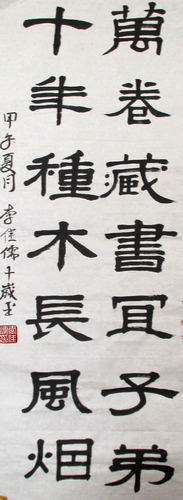 萬卷藏書宜子弟
十年種木長風烟
甲午夏月 李佳儒十歲書